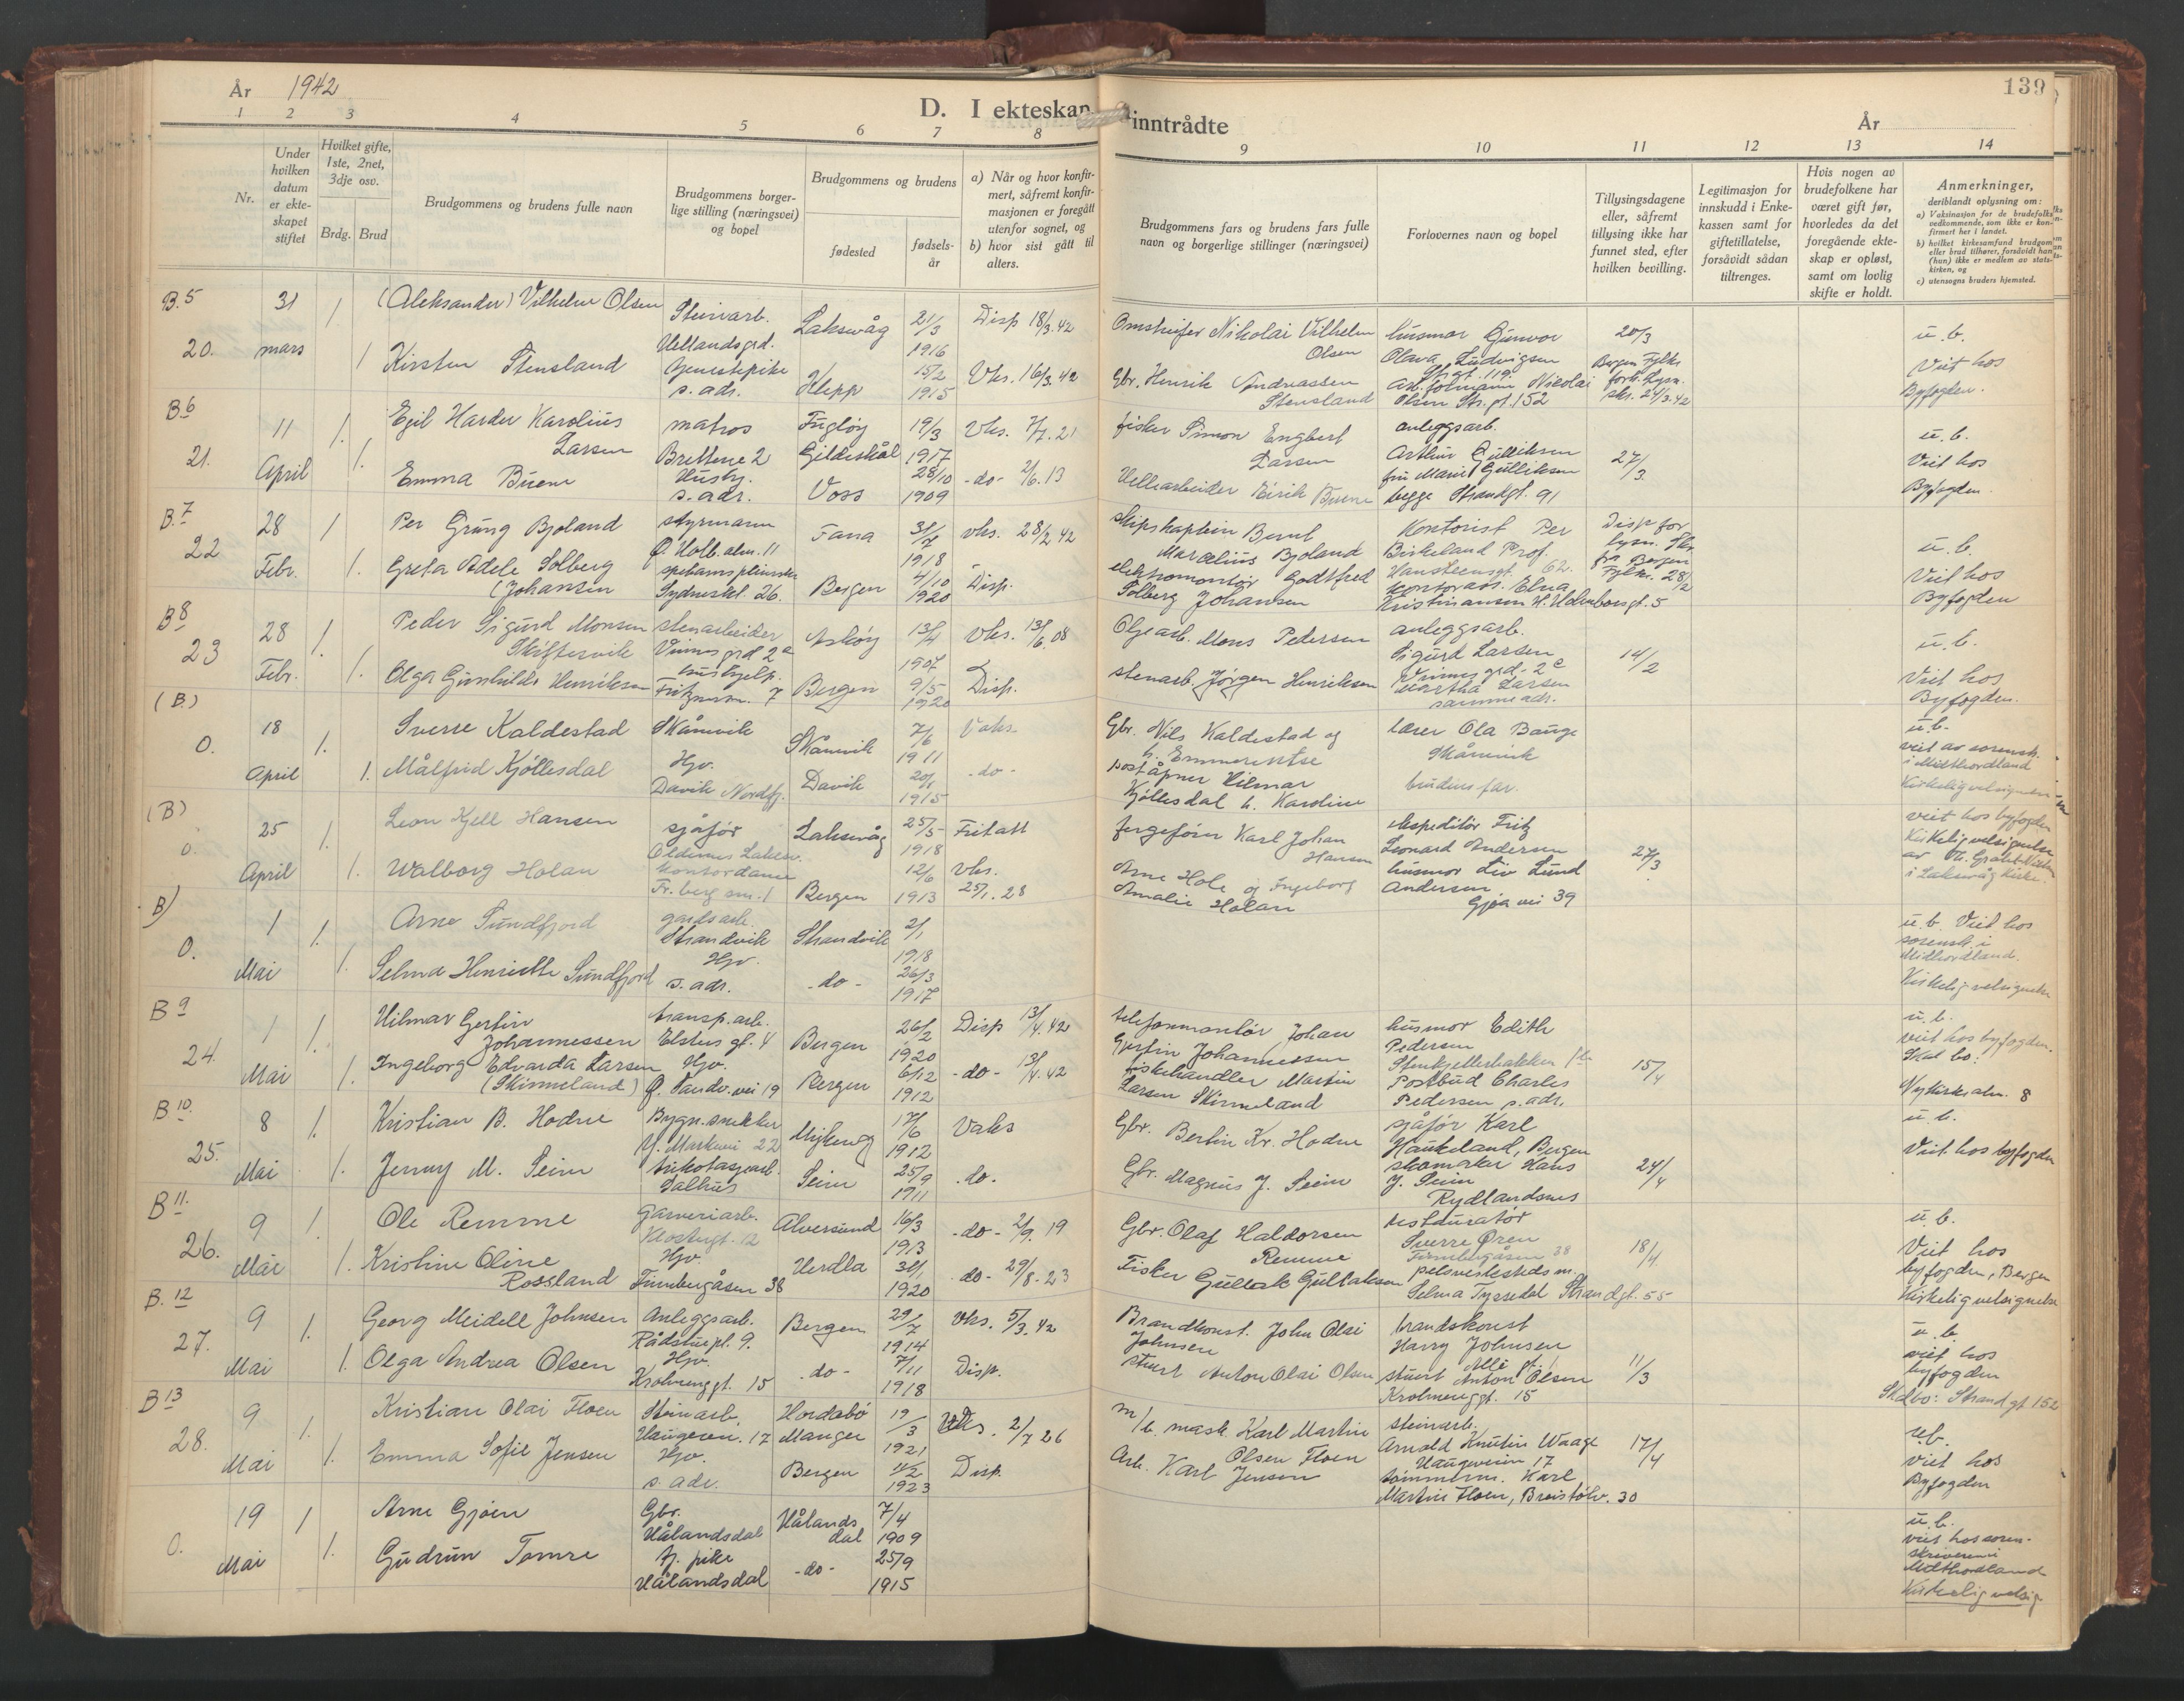 År 1942
D. I ekteskap inntrådte
År
139
1 2 3 4 5 6 7 8 9 10 11 12 13 14
Nr.
Under hvilken datum er ekteskapet stiftet
Hvilket gifte, 1ste, 2net, 3dje osv.
Brdg. Brud
Brudgommens og brudens fulle navn
Brudgommens borgerlige stilling (næringsvei) og bopel
Brudgommens og brudens
fødested
fødselsår
a) Når og hvor konfirmert, såfremt konfirmasjonen er foregått utenfor sognet, og
b) hvor sist gått til alters.
Brudgommens fars og brudens fars fulle navn og borgerlige stillinger (næringsvei)
Forlovernes navn og bopel
Tillysingsdagene eller, såfremt tillysing ikke har funnet sted, efter hvilken bevilling.
Legitimasjon for innskudd i Enkekassen samt for giftetillatelse, forsåvidt sådan tiltrenges.
Hvis nogen av brudefolkene har været gift før, hvorledes da det foregående ekteskap er opløst, samt om lovlig skifte er holdt.
Anmerkninger, deriblandt oplysning om:
a) Vaksinasjon for de brudefolks vedkommende, som ikke er konfirmert her i landet.
b) hvilket kirkesamfund brudgom eller brud tilhører, forsåvidt han (hun) ikke er medlem av statskirken, og
c) utensogns bruders hjemsted.
B.5
20.
31 mars
1
1
(Aleksander) Vilhelm Olsen
Kirsten Stensland
Steinarb.
s. adr.
Laksvåg
Klepp
21/3 1916
15/2 1915
Disp 18/3.42
Vks. 16/3.42
Nikolai Vilhelm Olsen
Gbr. Henrik Andreassen Stensland
husmor Gunvor
Olava Ludvigsen
Nikolai
Olsen Str.gt. 152
20/3
Bergen Fylke
24/3.42
u.b.
Viet hos
Byfogden
B 6
21.
11 April
1.
1.
Egil Harder Karolius Larsen
Emma Buene
matros
Brettene 2
Husby.
s. adr.
Fugløy
Gildeskål
Voss
19/3 1917
28/10 1909
Vks. 7/7.21
-do- 2/6.13
fisker Simon Engbert Larsen
Eirik Buene
anleggsarb.
Arthur Gulliksen
fru Marie Gulliksen
begge Strandgt. 91
27/3.
u.b.
Viet hos
Byfogden.
B.7
22
28 Febr.
1
1.
Per Grung Bjoland
Greta Adele Solberg
(Johansen
styrmann
Ø. Holb. alm. 11
Sydneskl. 26.
Fana
Bergen
31/7 1918
4/10 1920
vks. 28/2 42
Disp.
Skipskaptein Bernt
Marcelius Bjoland
elektromontør Godtfred
Solberg Johansen
Kontorist Per
Birkeland Prof.
Hansteensgt. 62
Kontorass. Elna
Kristiansen H. Holmboesgt. 5
Disp for
lysn.
fra Bergen
Fylke. 28/2
u.b.
Viet hos
Byfogden
B 8
23
28 Febr.
1.
1.
Peder Sigurd Monsen Skiftesvik
Olga Gunhilda Henriksen
stenarbeider
hushjelp.
Askøy
Bergen
13/4 1907
9/5 1920
Vks. 13/6.08
Disp.
Oljearb. Mons Pedersen
stenarb. Jørgen Henriksen
anleggsarb.
Sigurd Larsen
Martha Larsen
samme adr.
14/2
u.b.
Viet hos
Byfogden.
(B.)
0.
18 April
1.
1.
Sverre Kaldestad
Målfrid Kjøllesdal
Skånevik
Hjv.
Davik Nordfj.
Skånevik
Davik
7/6 1911
20/1 1915
Vaks.
-do-
Gbr. Nils Kaldestad og
h. Emmerentse
poståpner Hilmar
Kjøllesdal h. Karoline
lærer Ola Bauge
Skånevik
brudens far.
u.b.
viet av sorensk.
i Midthordland
Kirkelig velsignelse
(B)
0.
25 April
1.
1.
Leon Kjell Hansen
Walborg Holan
sjåfør
kontordame
Laksevåg
Bergen
25/5 1918
12/6 1913
Fritatt
vks.
25/1.28
Karl Johan Hansen
Arne Hole og Ingeborg
Amalie Holan
ekspeditør Fritz
Leonard Andersen
husmor Liv Lund
Andersen
Gjøa vei 39
27/3
viet hos byfogden
Kirkelig velsignelse
i Laksevåg Kirke.
B)
0.
1 Mai
1.
1.
Arne Sundfjord
Selma Henriette Sundfjord
gardsarb.
Strandvik
Hjv.
s. adr.
Strandvik
-do-
2/1 1918
26/3 1917
u.b. Viet hos
sorensk. i
Midthordland.
Kirkelig velsignelse
B 9
24.
1 Mai
1.
1.
Hilmar Gerfin Johannessen
Ingeborg Edvarda Larsen
(Skinneland)
transp.arb.
Elsters gt. 4
Hjv.
Ø. Sandv. vei 19
Bergen
Bergen
26/2 1920
6/12 1912
Disp 13/4.42
-do- 13/4.42
telefonmontør Johan
Gerfin Johannessen
fiskehandler Martin
Larsen Skinneland
husmor Edith
Pedersen
Stenkjellerbakken
Postbud Charles
Pedersen s. adr.
15/4
u.b.
viet hos byfogden.
Skal bo:
Nykirkealm. 8
B 10
25.
8 Mai
1.
1.
Kristian B. Hodne
Jenny M. Seim
Bygn.snekker
trikotasjearb.
Salhus
Seim
17/6 1912
25/9 1911
Vaks
-do.
Gbr. Bertin Kr. Hodne
Gbr. Magnus J. Seim
sjåfør Karl
Haukeland, Bergen
skomaker Hans
J. Seim
Rydlandsnes
24/4
u.b.
Viet hos byfogden
B 11.
26.
9 Mai
1.
1.
Ole Remme
Kristine Oline Rossland
Garveriarb.
Klostergt. 12
Hjv.
Finnbergåsen 38
Alversund
Herdla
16/3 1913
1920
-do- 2/9.19
-do- 29/8-23
Gbr. Olaf Haldorsen Remme
Fisker Gullak Gullaksen
restauratør
Sverre Øren
Finnbergåsen 38
Selma Tyssedal Strandgt. 55
18/4
u.b.
Viet hos
byfogden, Bergen
Kirkelig velsignelse
B. 12
27.
9 Mai
1.
1.
Georg Meidell Johnsen
Olga Andrea Olsen
Anleggsarb.
Rådstuepl. 9.
Hjv.
Krohnenggt. 15
Bergen
-do-
29/7 1914
7/11 1918
Vks. 5/3.42
Disp.
Brandkonst. John Olai
Johnsen
stuert Anton Olai Olsen
brandskonst
Harry Johnsen
stuert Anton Olsen
Krohnenggt. 15
11/3
u.b.
viet hos
byfogden
Skal bo: Strandgt 152
B 13
28.
9 Mai
1.
1.
Kristian Olai Floen
Emma Sofie Jensen
Steinarb.
Haugeveien. 17
Hjv.
s. adr.
Hordabø
Manger
Bergen
19/3 1921
11/2 1923
Vks. 2/7 26
Disp.
m/b. mask. Karl Martin
Olsen Floen
Arb. Karl Jensen
steinarb.
Arnold Knutin Waage
Haugeveien 17
tømmerm. Karl
Martin Floen, Breistølv. 30
17/4
u.b.
viet hos
Byfogden
0.
19 Mai
1
1.
Arne Gjøen
Gudrun Tomre
Gbr.
Hålandsdal
tj. pike
Hålandsdal
Hålandsdal
-do-
7/4 1909
25/9 1915
u.b.
viet hos sorenskriveren i
Midthordland
Kirkelig velsig.